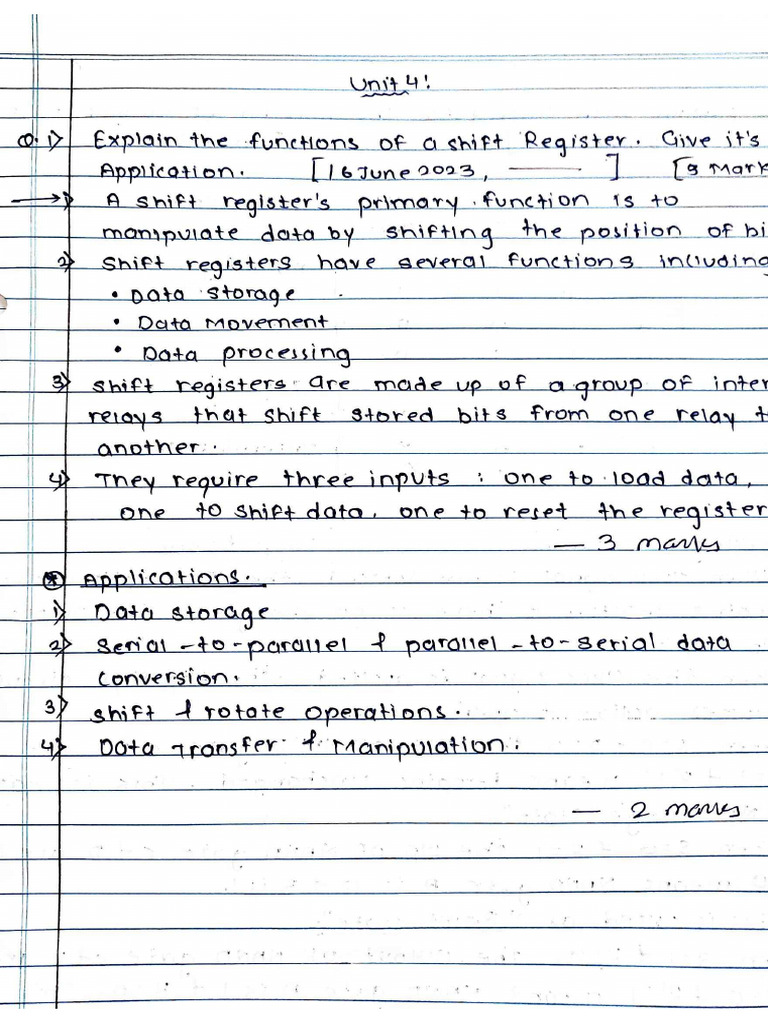 Unit 4!
Q.1) Explain the functions of a shift Register. Give it's
Application. [16 June 2023, ——— ] [ Mark
→ 1) A shift register's primary function is to
manipulate data by shifting the position of bi
2) Shift registers have several functions including
• Data storage
• Data Movement
• Data processing
3) Shift registers are made up of a group of inter
relays that shift stored bits from one relay t
another.
4) They require three inputs : one to load data,
one to shift data, one to reset the register
— 3 marks
* Applications.
1) Data storage
2) Serial-to-parallel & parallel-to-serial data
conversion.
3) Shift & rotate operations.
4) Data Transfer & Manipulation.
— 2 marks